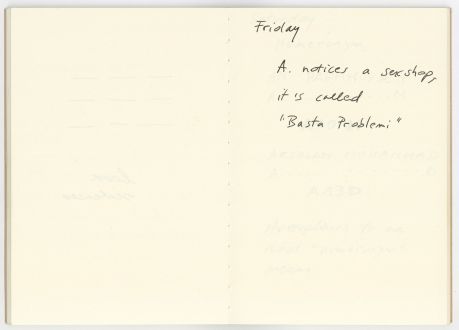 Friday
A. notices a sexshop,
it is called
"Basta Problemi"